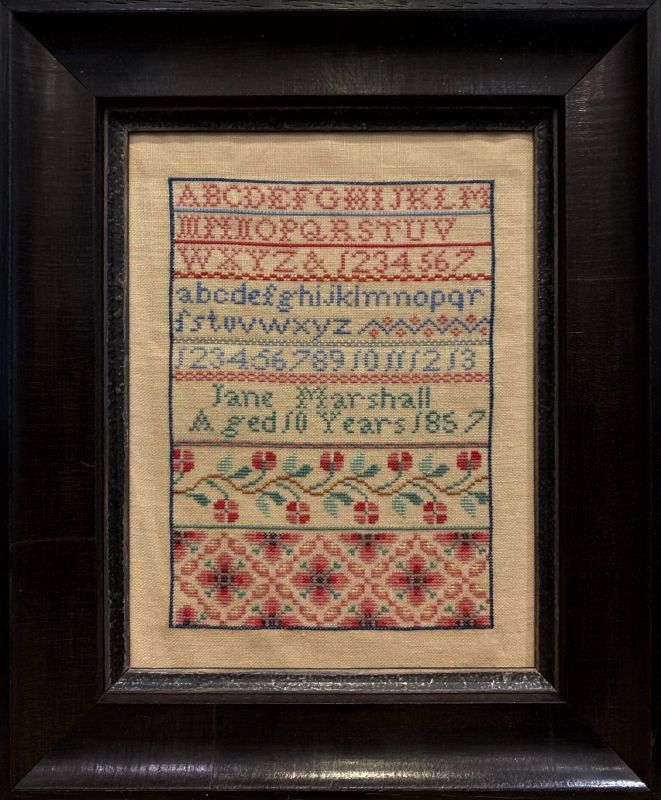 ABCDEFGHIJKLM
MNOPQRSTUV
WXYZ& 1234567
abcdefghijklmnopqr
ſstuvwxyz
12345678910111213
Jane Marshall
Aged 10 Years 1857